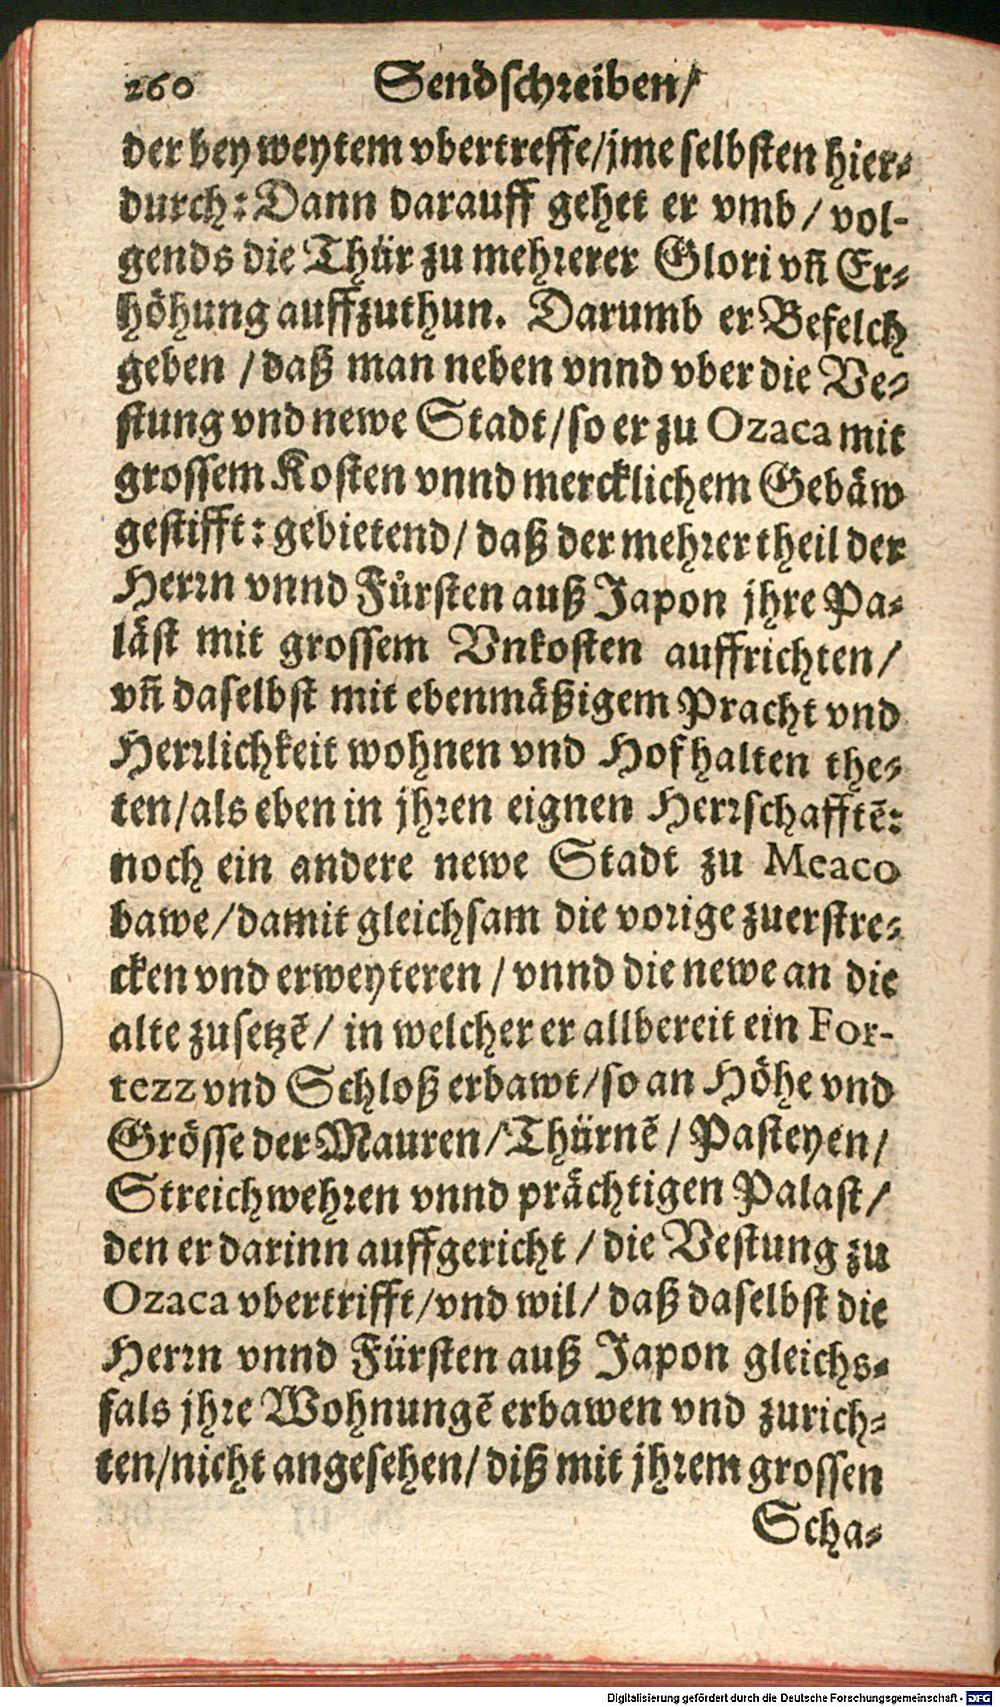 260 Sendschreiben/
der bey weytem vbertreffe/jme selbsten hier-
durch: Dann darauff gehet er vmb/ vol-
gends die Thür zu mehrerer Glori vñ Er-
höhung auffzuthun. Darumb er Befelch
geben /daß man neben vnnd vber die Ve-
stung vnd newe Stadt/so er zu Ozaca mit
grossem Kosten vnnd mercklichem Gebäw
gestifft: gebietend/ daß der mehrer theil der
Herrn vnnd Fürsten auß Japon jhre Pa-
läst mit grossem Vnkosten auffrichten/
vñ daselbst mit ebenmäßigem Pracht vnd
Herrlichkeit wohnen vnd Hof halten the-
ten/als eben in jhren eignen Herrschafftẽ:
noch ein andere newe Stadt zu Meaco
bawe/damit gleichsam die vorige zuerstre-
cken vnd erweyteren / vnnd die newe an die
alte zusetzẽ/ in welcher er allbereit ein For-
tezz vnd Schloß erbawt/so an Höhe vnd
Grösse der Mauren/Thürnẽ/ Pasteyen/
Streichwehren vnnd prächtigen Palast/
den er darinn auffgericht / die Vestung zu
Ozaca vbertrifft/vnd wil/ daß daselbst die
Herrn vnnd Fürsten auß Japon gleichs-
fals jhre Wohnungẽ erbawen vnd zurich-
ten/nicht angesehen/ diß mit jhrem grossen
Scha-
Digitalisierung gefördert durch die Deutsche Forschungsgemeinschaft - DFG